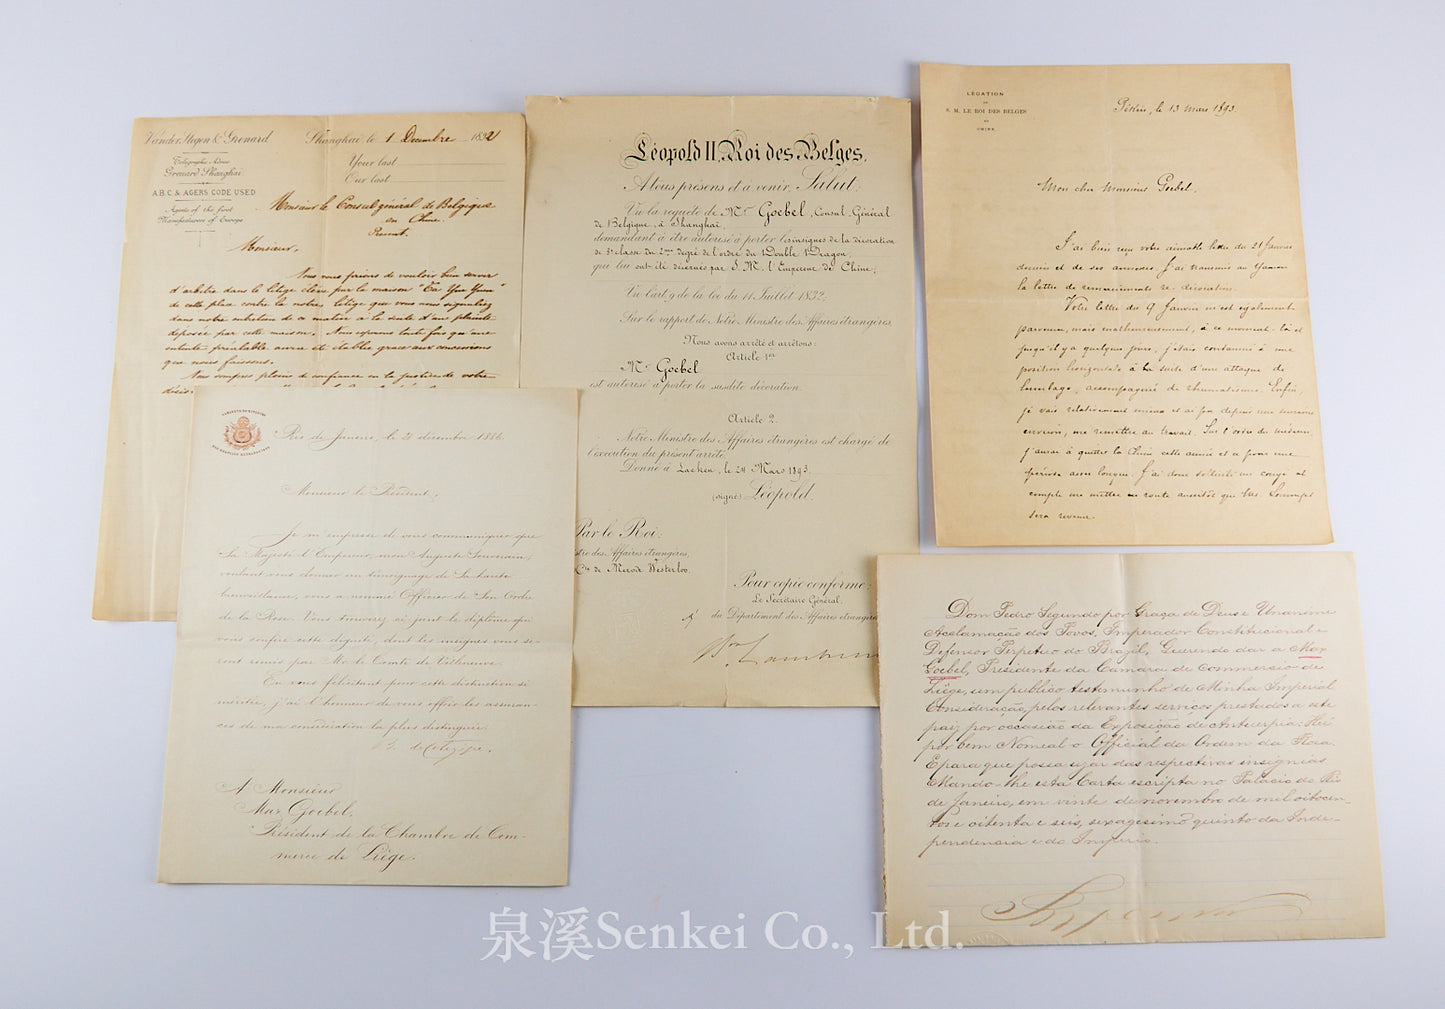 Vander Stegen & Grenard
Shanghai le 1 Decembre 1892
Telegraphic Adress
Grenard Shanghai
Your last
Our last
A.B.C & AGERS CODE USED
Agents of the first
Manufacturers of Europe
Monsieur le Consul général de Belgique
en Chine.
Présent.
Monsieur,
Nous vous prions de vouloir bien servir
d'arbitre dans le litige élevé par la maison
de cette place contre la notre, litige que vous nous signaliez
dans notre entretien de ce matin à la suite d'une plainte
déposée par cette maison. Nous espérons tout fois qu'une
entente préalable aura été établie grace aux concessions
que nous faisons.
Nous sommes pleins de confiance en la justice de votre
Léopold II, Roi des Belges,
A tous présens et à venir, Salut:
Vu la requête de Mr Goebel, Consul Général
de Belgique, à Shanghaï,
demandant à être autorisé à porter les insignes de la décoration
de 3e classe du 2me degré de l'ordre du Double Dragon,
qui lui ont été décernés par S. M. l'Empereur de Chine;
Vu l'art 9 de la loi du 11 Juillet 1832;
Sur le rapport de Notre Ministre des Affaires étrangères,
Nous avons arrêté et arrêtons:
Article 1er
Mr Goebel
est autorisé à porter la susdite décoration.
Article 2.
Notre Ministre des Affaires étrangères est chargé de
l'exécution du présent arrêté.
Donné à Laeken, le 24 Mars 1893.
(signé) Léopold.
Par le Roi:
stre des Affaires étrangères,
Cte de Merode Westerloo.
Pour copie conforme:
Le Secrétaire Général
du Département des Affaires étrangères
Bon Lambermont
LÉGATION
DE
S. M. LE ROI DES BELGES
EN
CHINE
Pékin, le 13 mars 1893
Mon cher Monsieur Goebel,
J'ai bien reçu votre aimable lettre du 21 Janvier
dernier et de ses annexes. J'ai transmis au Yamen
la lettre de remerciements re décoration.
Votre lettre du 9 Janvier m'est également
parvenue, mais malheureusement, à ce moment-là et
jusqu'il y a quelques jours, j'étais condamné à une
position horizontale à la suite d'une attaque de
lumbago, accompagnée de rhumatisme. Enfin,
je vais relativement mieux et ai pu, depuis une semaine
environ, me remettre au travail. Sur l'ordre du médecin,
j'aurai à quitter la Chine cette année et ce pour une
période assez longue. J'ai donc sollicité un congé et
compte me mettre en route aussitôt que
sera revenu.
Rio de Janeiro, le 20 décembre 1886.
Monsieur le Président,
Je m'empresse de vous communiquer que
Sa Majesté l'Empereur, mon Auguste Souverain,
voulant vous donner un témoignage de Sa haute
bienveillance, vous a nommé Officier de Son Ordre
de la Rose. Vous trouverez ci joint le diplôme qui
vous confère cette dignité, dont les insignes vous se-
ront remis par Mr le Comte de Villeneuve.
En vous félicitant pour cette distinction si
méritée, j'ai l'honneur de vous offrir les assuran-
ces de ma considération la plus distinguée.
de Cotegipe.
A Monsieur
Max Goebel,
Président de la Chambre de Com-
merce de Liège.
Dom Pedro Segundo por Graça de Deus e Unanime
Acclamação dos Povos, Imperador Constitucional e
Defensor Perpetuo do Brazil, Querendo dar a Max
Goebel, Presidente da Camara de Commercio de
Liége, um publico testemunho de Minha Imperial
Consideração, pelos relevantes serviços prestados a este
paiz por occasião da Exposição de Antuerpia: Hei
por bem Nomeal-o Official da Ordem da Rosa.
E para que possa uzar das respectivas insignias
Mando-lhe esta Carta escripta no Palacio do Rio
de Janeiro, em vinte de novembro de mil oitocen-
tos e oitenta e seis, sexagesimo quinto da Inde-
pendencia e do Imperio.
泉溪Senkei Co., Ltd.